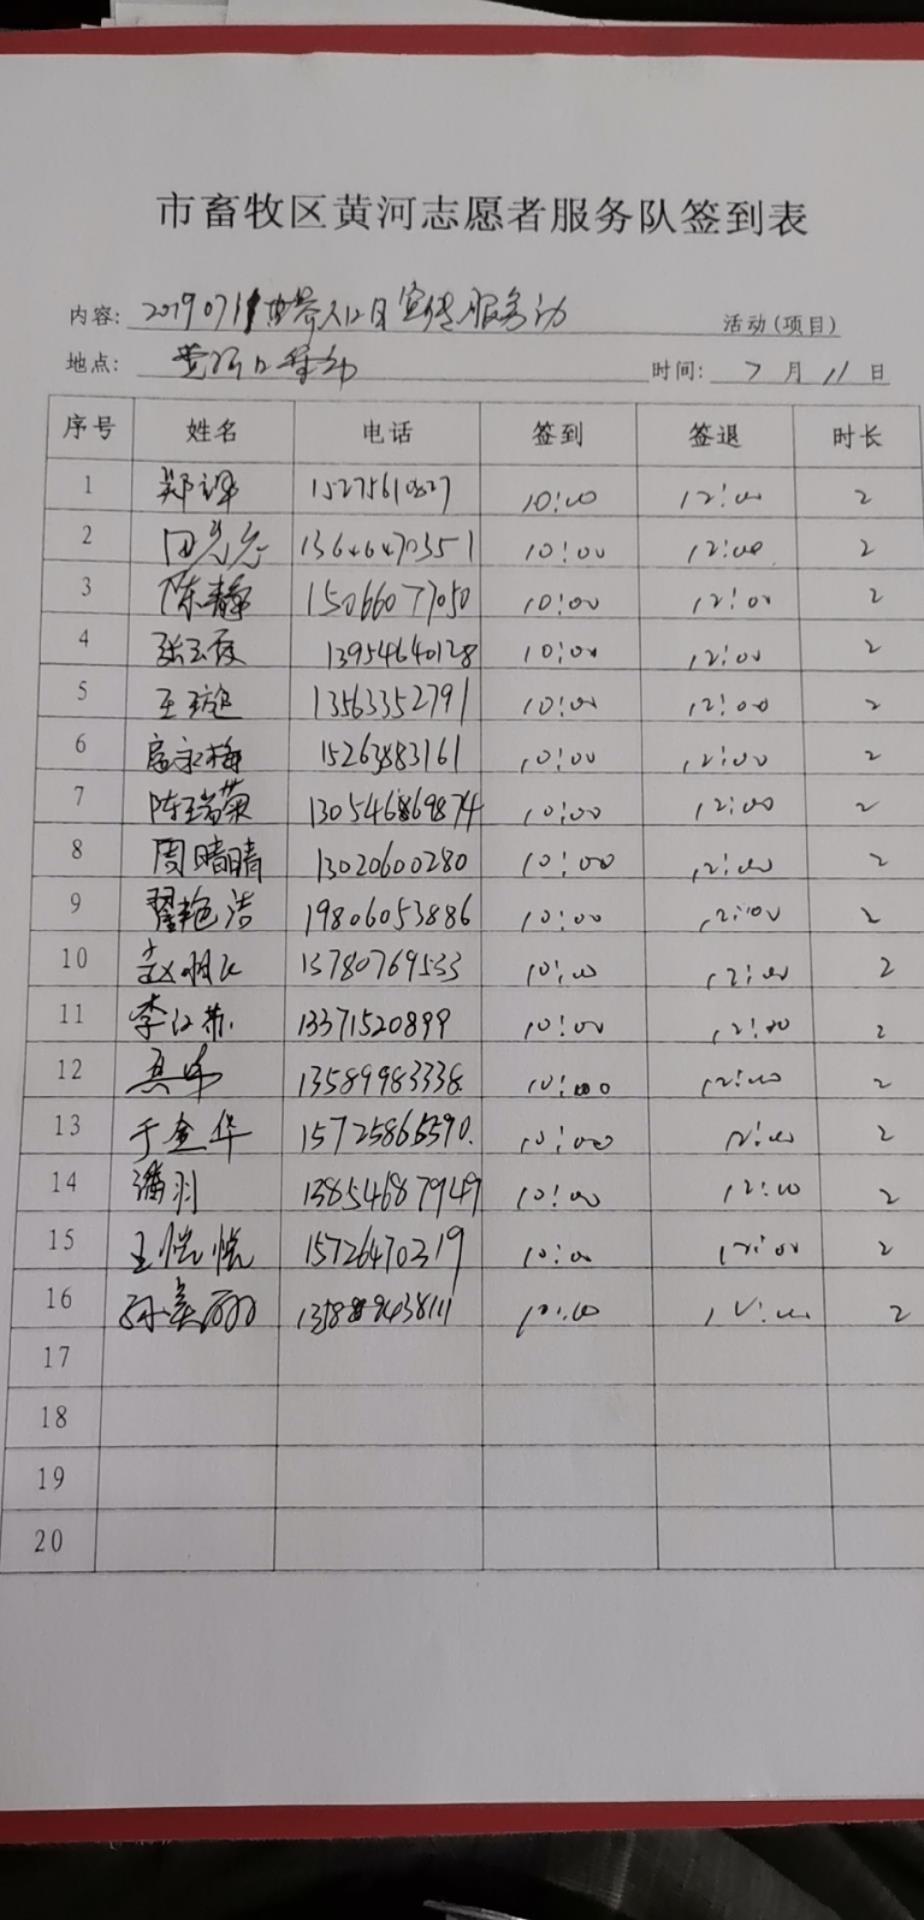 市畜牧区黄河志愿者服务队签到表
内容: 20190711世界人口日宣传服务活动 活动(项目)
地点: 黄河口 时间: 7月11日
序号 姓名 电话 签到 签退 时长
1 郑 15275610827 10:00 12:00 2
2 田 13646470351 10:00 12:00 2
3 陈静 15066077050 10:00 12:00 2
4 张玉霞 13954640128 10:00 12:00 2
5 王 13563352791 10:00 12:00 2
6 扈永梅 15263883161 10:00 12:00 2
7 陈瑞菊 10:00 12:00 2
8 周晴晴 13020600280 10:00 12:00 2
9 翟艳洁 19806053886 10:00 12:00 2
10 赵明 13780769533 10:00 12:00 2
11 李江 13371520899 10:00 12:00 2
12 13589983338 10:00 12:00 2
13 于金华 15725865590. 10:00 12:00 2
14 潘羽 10:00 12:00 2
15 王恍恍 15726470219 10:00 12:00 2
16 孙美丽 10:00 12:00 2
17
18
19
20